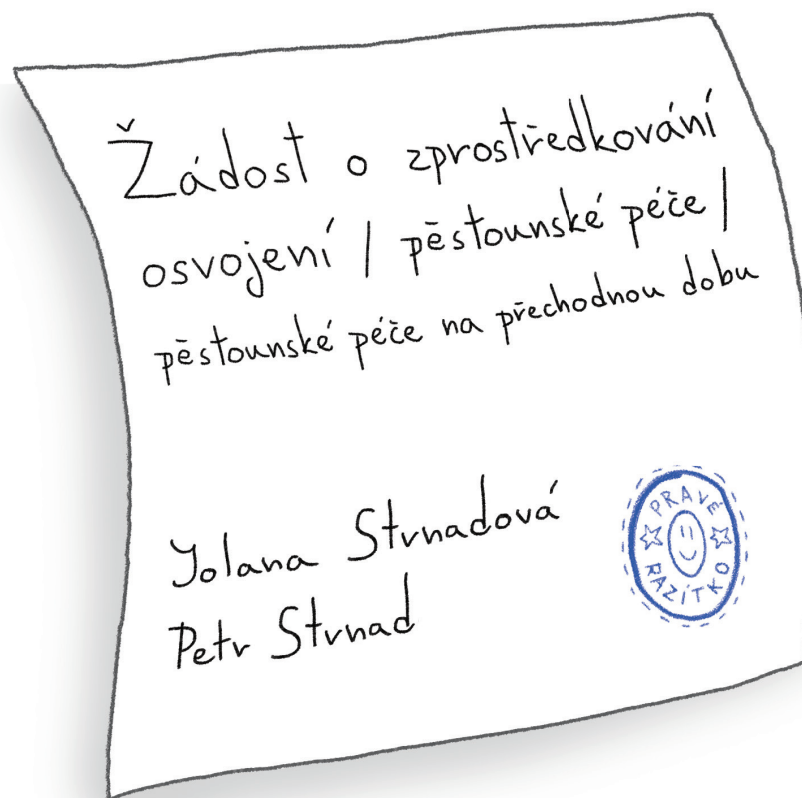 Žádost o zprostředkování
osvojení / pěstounské péče /
pěstounské péče na přechodnou dobu
Jolana Strnadová
Petr Strnad
PRAVÉ
RAZÍTKO